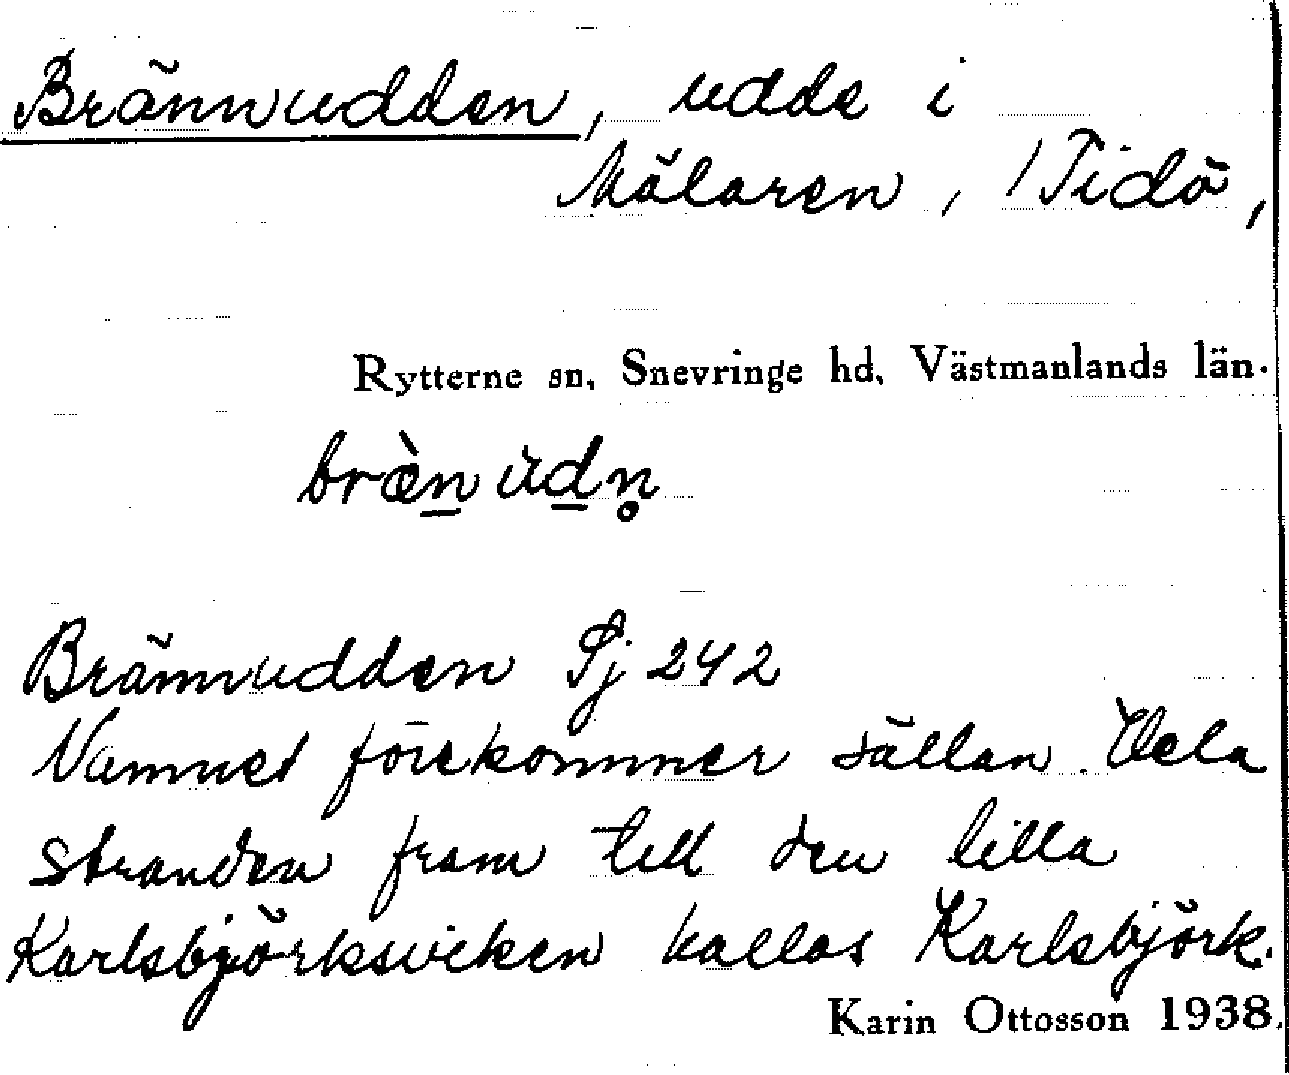 Brännudden, udde i
Mälaren, / Tidö,
Rytterne sn, Snevringe hd, Västmanlands län.
bræ̀n̲ ùd̲n̥
Brännudden Sj 242
Namnet förekommer sällan. Hela
stranden fram till den lilla
Karlsbjörksviken kallas Karlsbjörk.
Karin Ottosson 1938.